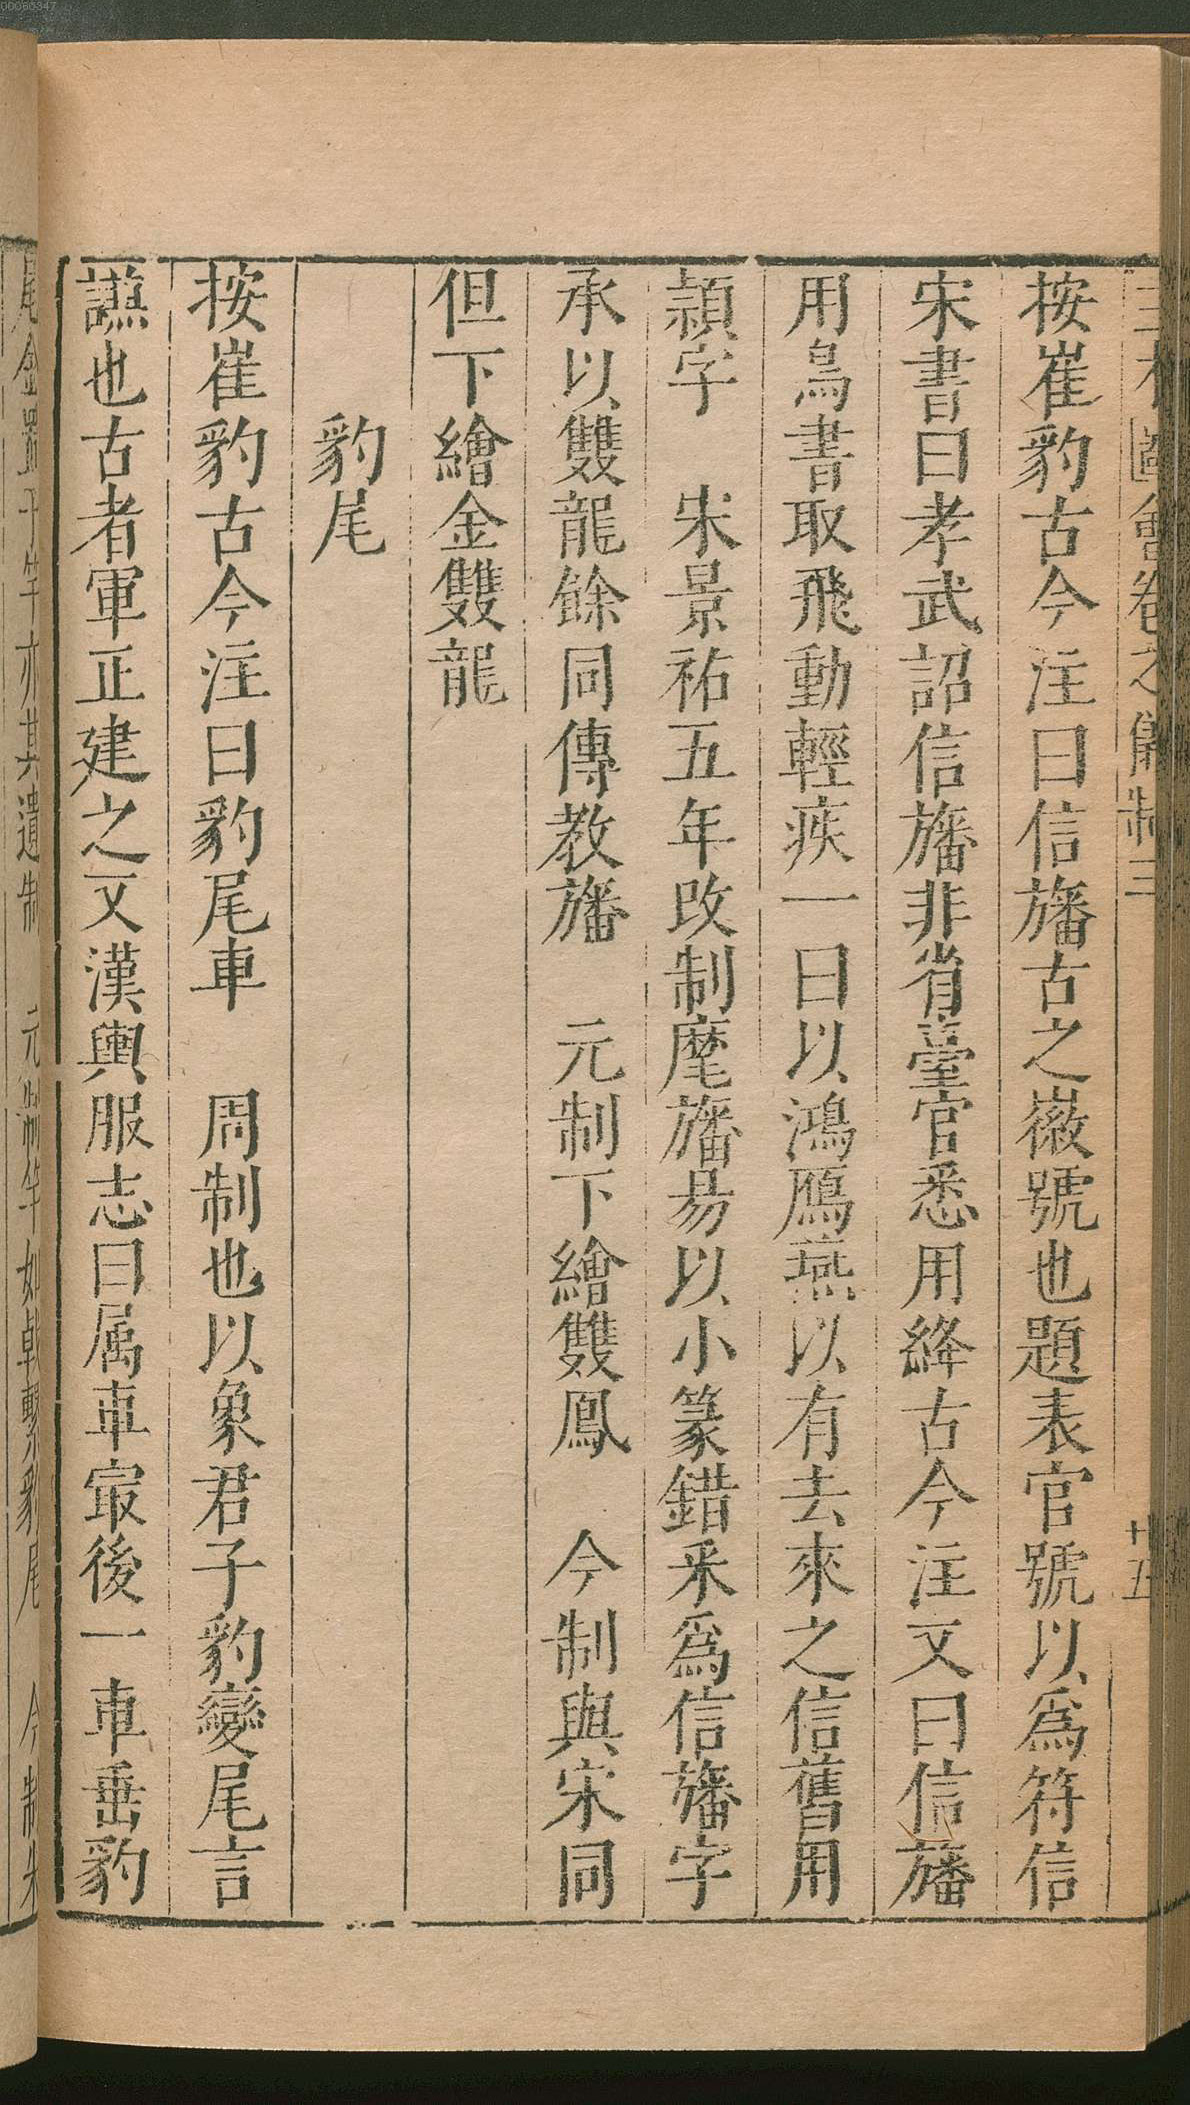 按崔豹古今注曰信旛古之徽號也題表官號以爲符信
宋書曰孝武詔信旛非省臺官悉用絳古今注又曰信旛
用鳥書取飛動輕疾一曰以鴻鴈燕以有去來之信舊用
頴字　宋景祐五年改制麾旛易以小篆錯采爲信旛字
承以雙龍餘同傳教旛　元制下繪雙鳳　今制與宋同
但下繪金雙龍
豹尾
按崔豹古今注曰豹尾車　周制也以象君子豹變尾言
讌也古者軍正建之又漢輿服志曰属車㝡後一車垂豹
尾金　于竿亦其遺制　元制竿如戟繫豹尾　今制朱
三才圖會卷之儀制三
十五
00060347